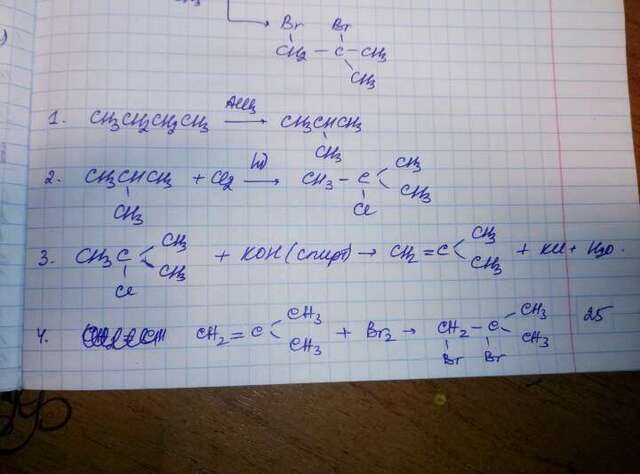 Br Br
CH2 — C — CH3
CH3
1. CH3CH2CH2CH3 AlCl3 → CH3CHCH3
CH3
2. CH3CHCH3 + Cl2 hν → CH3 — C CH3 CH3
CH3 Cl
3. CH3C CH3 CH3 + KOH (спирт) → CH2 = C CH3 CH3 + KCl + H2O.
Cl
4. CH2 = C CH3 CH3 + Br2 → CH2 — C CH3 CH3 25
Br Br